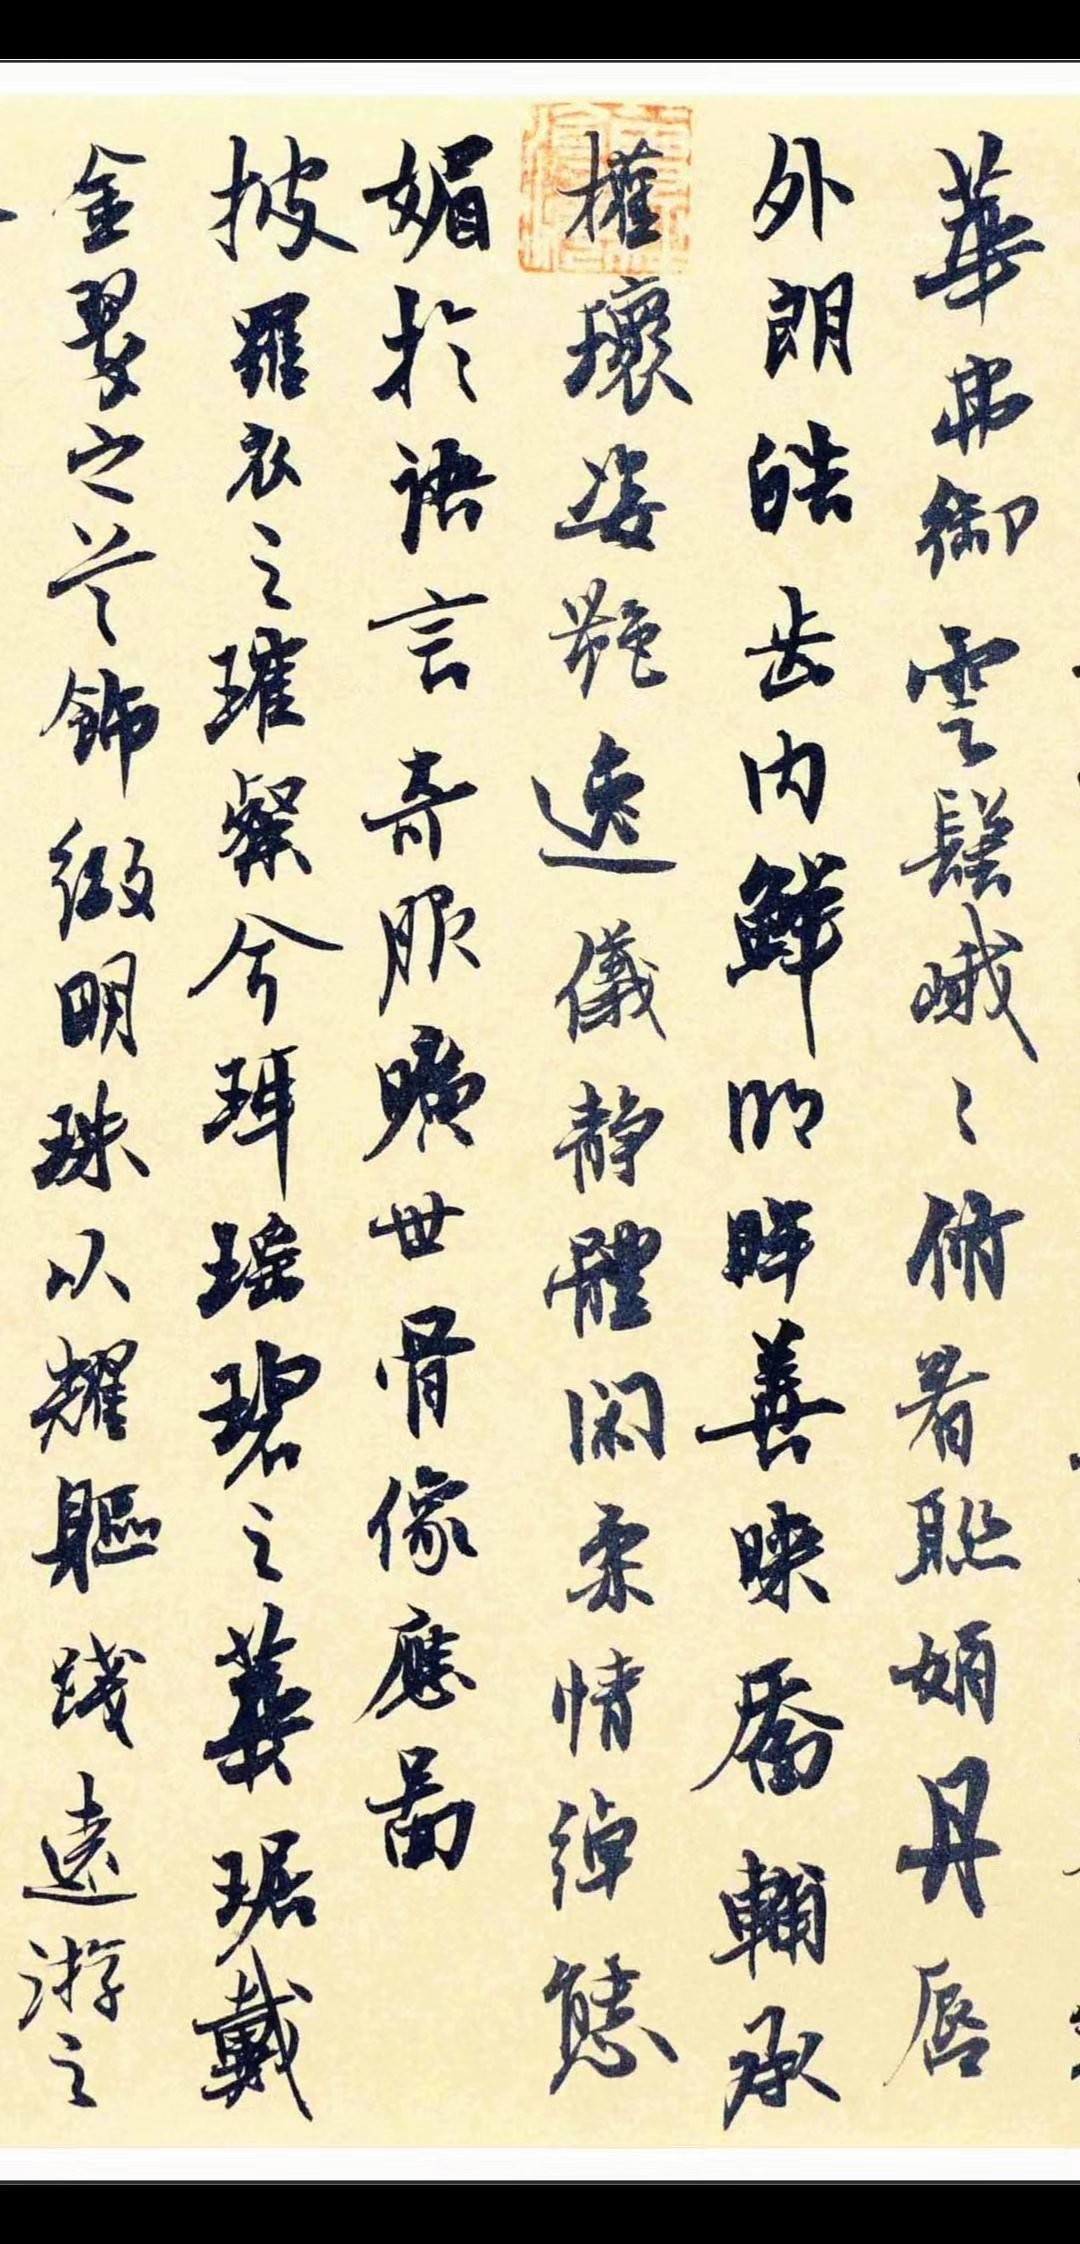 華弗御雲髻峨〻俯眉聯娟丹唇
外朗皓齒内鮮明眸善睐靨輔承
權瓌姿艷逸儀靜體閑柔情綽態
媚於語言奇服曠世骨像應圖
披羅衣之璀粲兮珥瑤碧之華琚戴
金翠之首飾綴明珠以耀軀踐遠游之